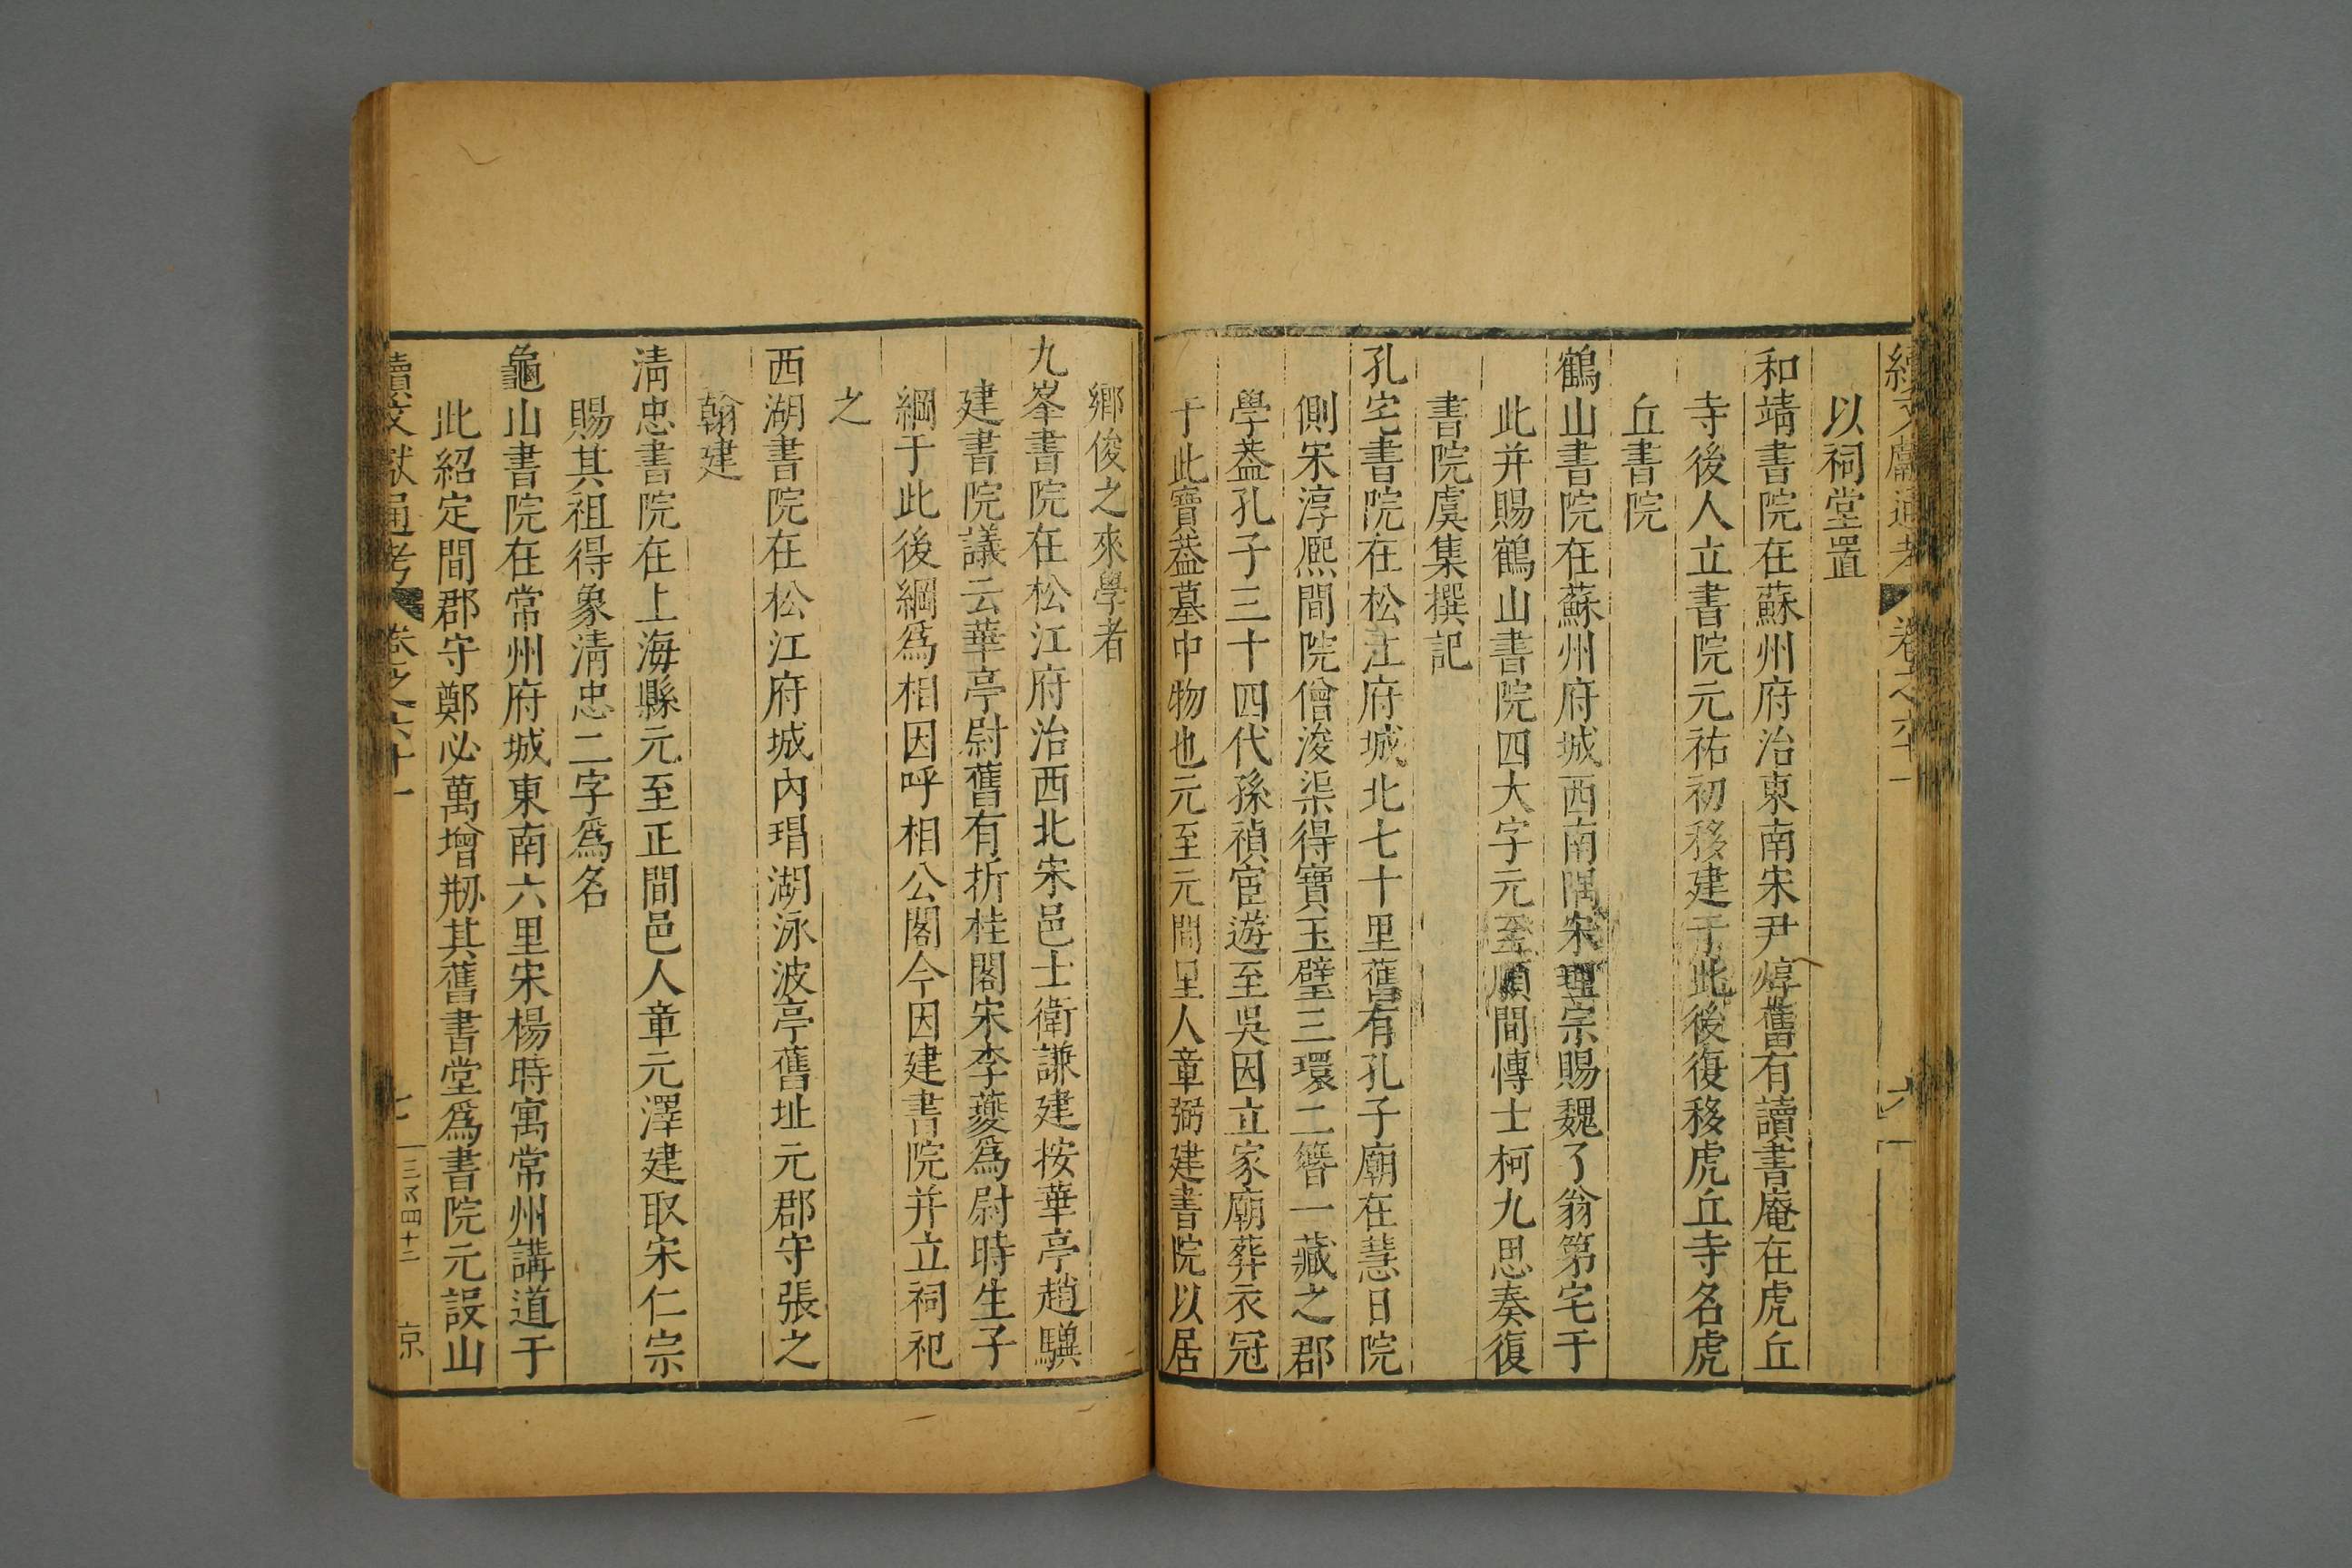 續文獻通考 卷之六十一 六
以祠堂置
和靖書院在蘇州府治東南宋尹焞舊有讀書庵在虎丘
寺後人立書院元祐初移建于此後復移虎丘寺名虎
丘書院
鶴山書院在蘇州府城西南隅宋理宗賜魏了翁第宅于
此并賜鶴山書院四大字元至順間博士柯九思奏復
書院虞集撰記
孔宅書院在松江府城北七十里舊有孔子廟在慧日院
側宋淳熈間院僧浚渠得寶玉璧三環二簪一藏之郡
學葢孔子三十四代孫禎宦遊至吳因立家廟葬衣冠
于此寶葢墓中物也元至元間里人章弼建書院以居
鄉俊之來學者
九峯書院在松江府治西北宋邑士衛謙建按華亭趙驥
建書院議云華亭尉舊有折桂閣宋李夔爲尉時生子
綱于此後綱爲相因呼相公閣今因建書院并立祠祀
之
西湖書院在松江府城內瑁湖泳波亭舊址元郡守張之
翰建
淸忠書院在上海縣元至正間邑人章元澤建取宋仁宗
賜其祖得象淸忠二字爲名
龜山書院在常州府城東南六里宋楊時寓常州講道于
此紹定間郡守鄭必萬增剏其舊書堂爲書院元設山
續文獻通考 卷之六十一 七 三百四十二 京